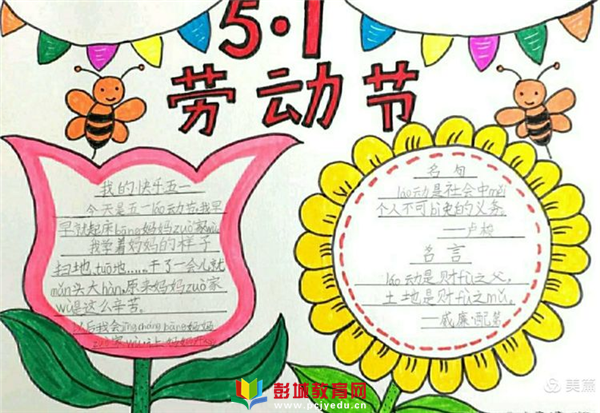 5·1
劳动节
我的快乐五一
今天是五一láo动节,我早
早就起床bāng妈妈zuò家wù。
我学着妈妈的样子
扫地、tuō地……干了一会儿就
mǎn头大hàn,原来妈妈zuò家
wù是这么辛苦。
以后我会jīng cháng bāng妈妈
名句
láo动是社会中měi
个人不可bì免的义务。
——卢梭
名言
láo动是财fù之父,
土地是财fù之mǔ。
——威廉·配第
彭城教育网
www.pcjyedu.cn
美篇